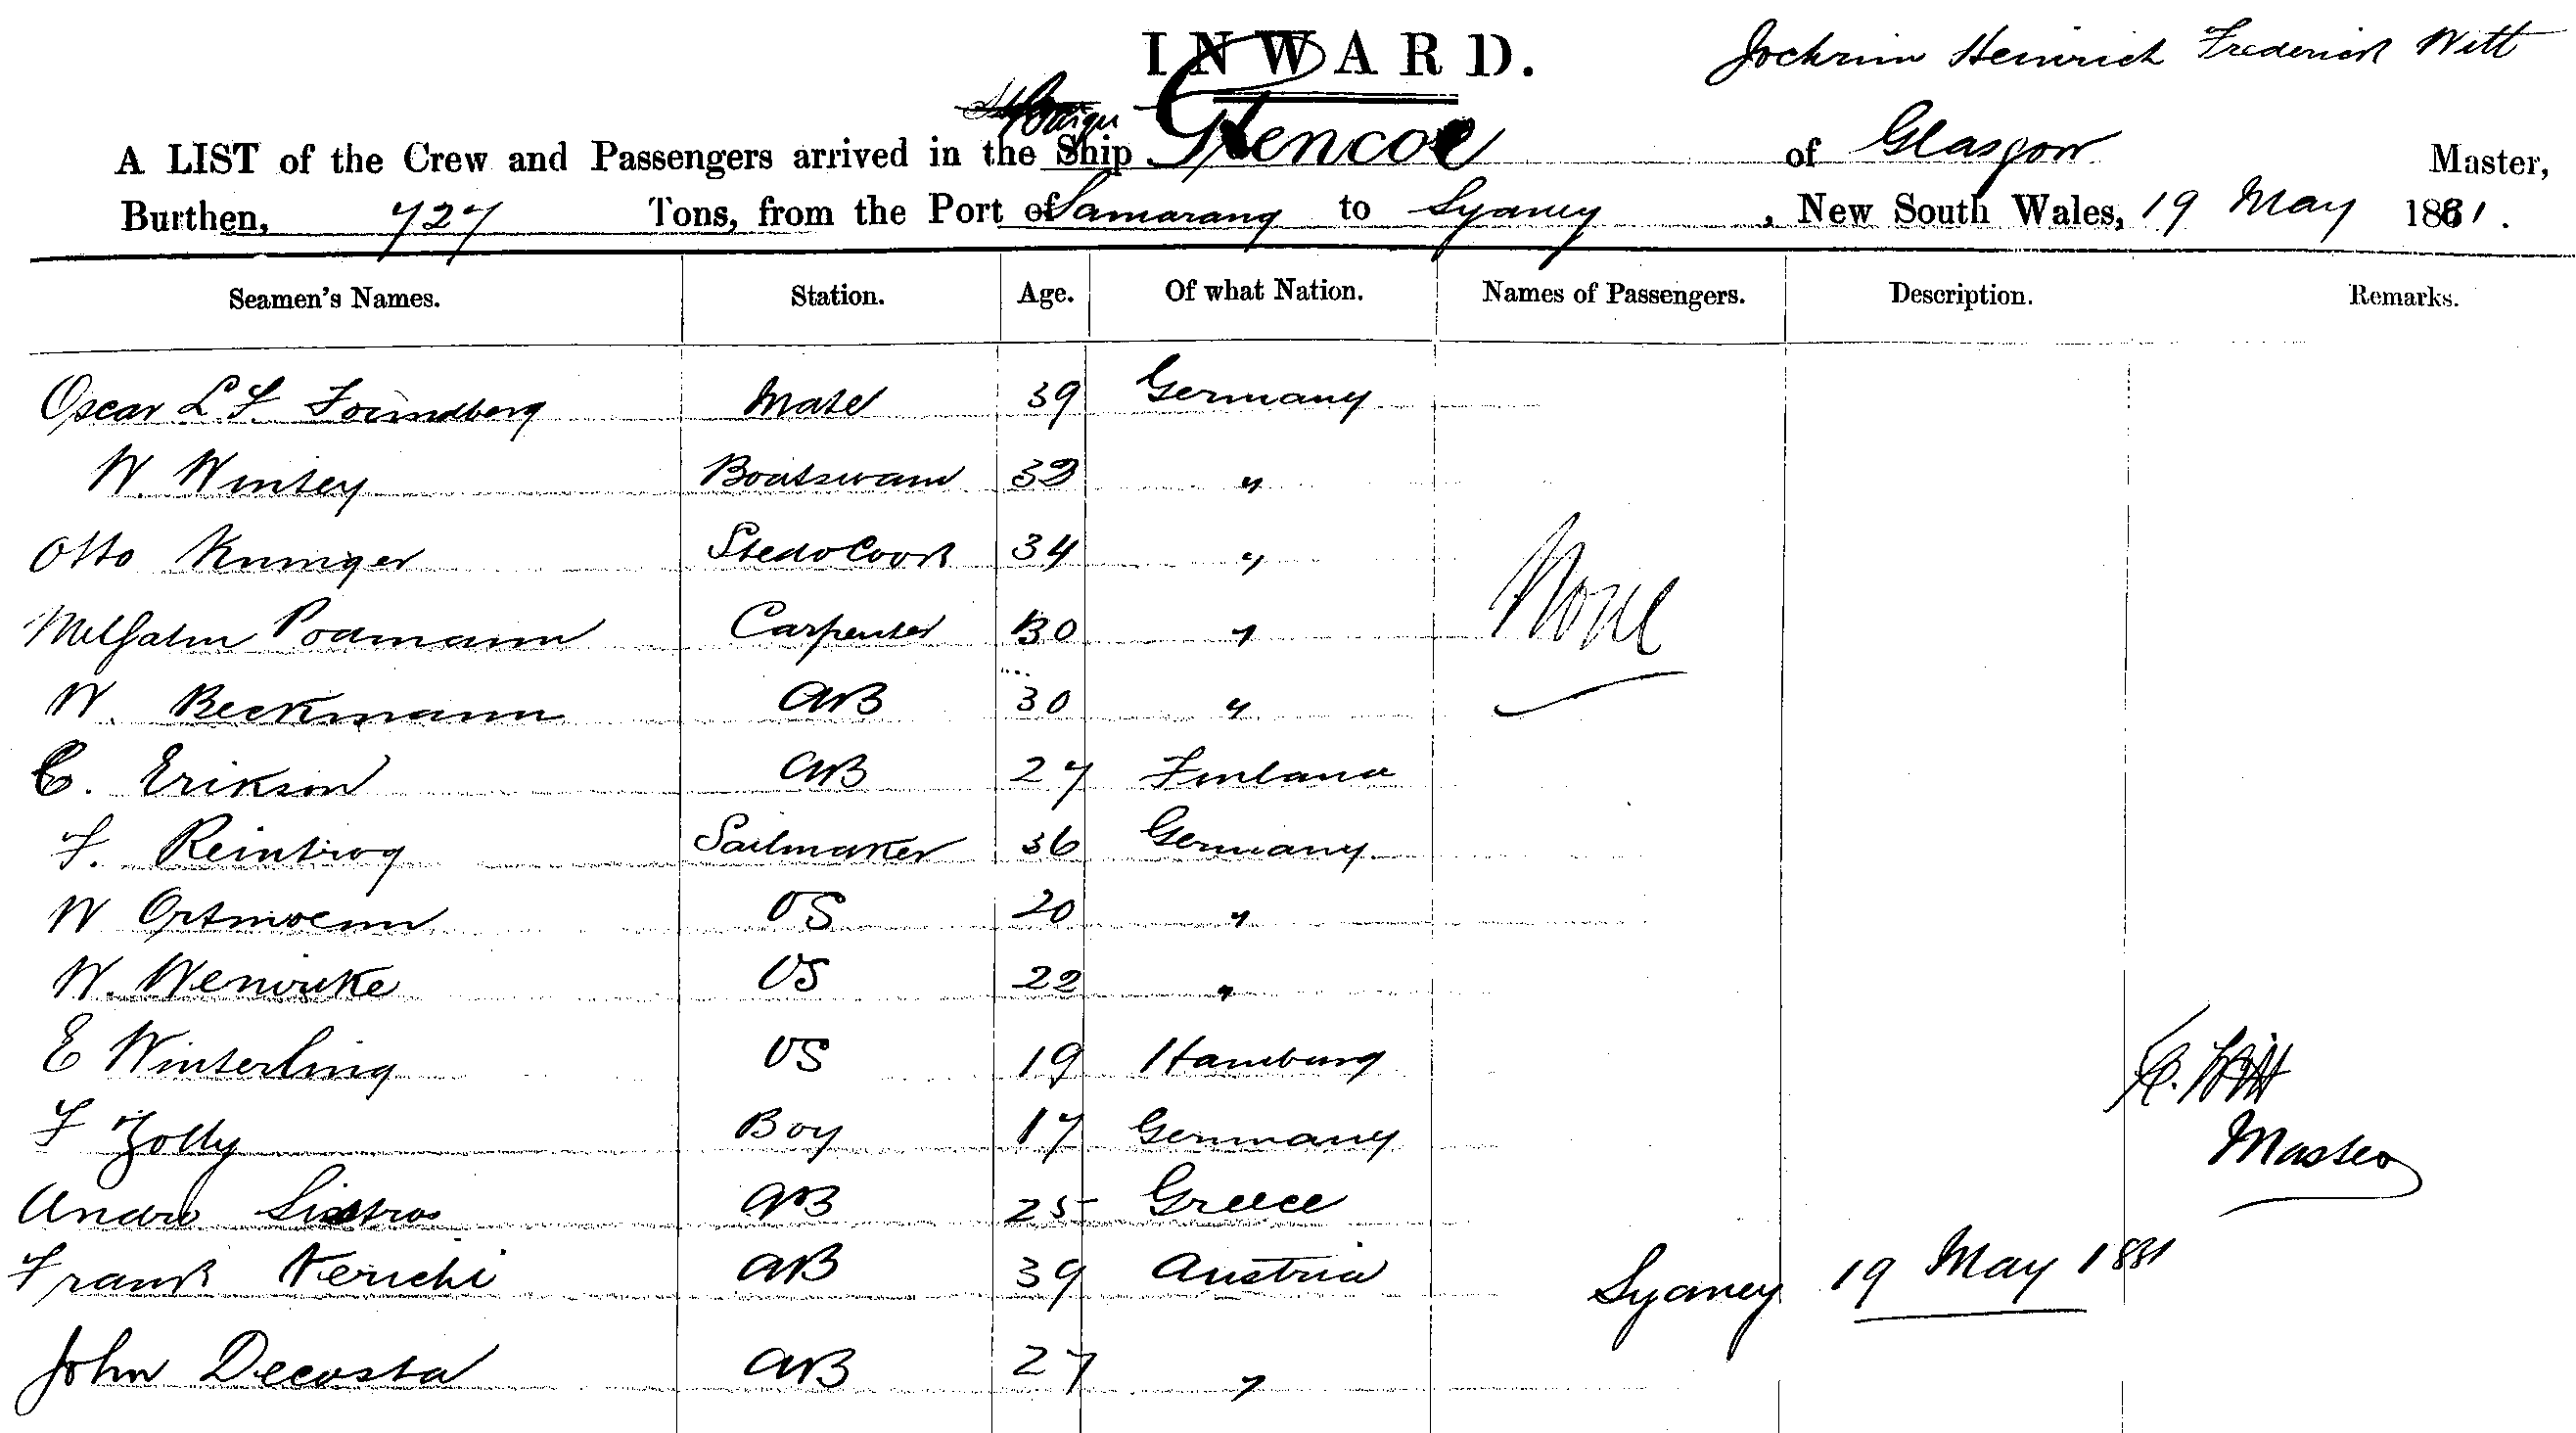 INWARD.
Heinrich Frederick Witt
A LIST of the Crew and Passengers arrived in the Ship Glencoe of Glasgow Master,
Burthen, 727 Tons, from the Port of Samarang to Sydney, New South Wales, 19 May 1881.
Seamen's Names. Station. Age. Of what Nation. Names of Passengers. Description. Remarks.
Oscar L F Mate 39 Germany
W. Boatswain 32 "
Otto Stewd Cook 34 " None
Carpenter 30 "
W. Beckmann AB 30 "
C. Erikson AB 27 Finland
F. Sailmaker 36 Germany
W Ortmann OS 20 "
W. OS 22 "
E Winterling OS 19 Hamburg
Witt
F Zolly Boy 17 Germany
Master
Andre AB 25 Greece
Frank AB 39 Austria Sydney 19 May 1881
John Decosta AB 27 "